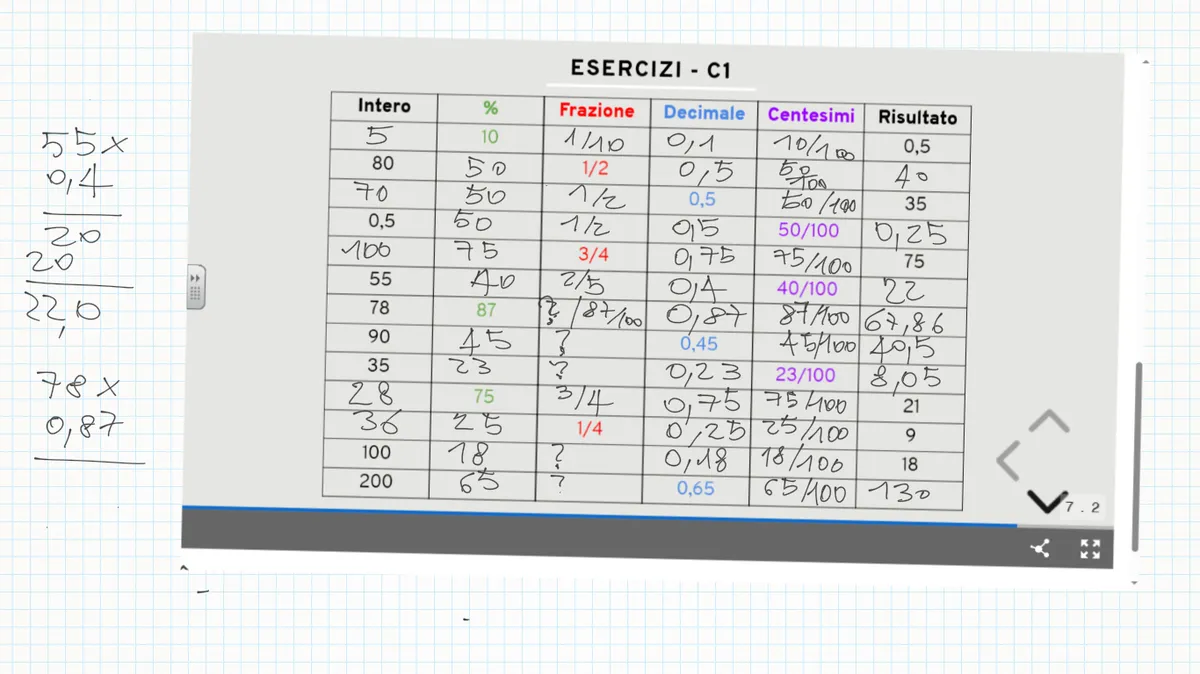 ESERCIZI - C1
Intero % Frazione Decimale Centesimi Risultato
5 10 1/10 0,1 10/100 0,5
80 50 1/2 0,5 50/100 40
70 50 1/2 0,5 50/100 35
0,5 50 1/2 0,5 50/100 0,25
100 75 3/4 0,75 75/100 75
55 40 2/5 0,4 40/100 22
78 87 ?/87/100 0,87 87/100 67,86
90 45 ? 0,45 45/100 40,5
35 23 ? 0,23 23/100 8,05
28 75 3/4 0,75 75/100 21
36 25 1/4 0,25 25/100 9
100 18 ? 0,18 18/100 18
200 65 ? 0,65 65/100 130
7.2
55x
0,4
20
20
22,0
78x
0,87